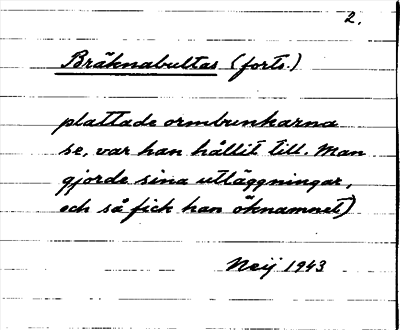 2.
Bräknabultas (forts.)
plattade ormbunkarna
se, var han hållit till. Man
gjorde sina utläggningar,
och så fick han öknamnet)
Neij 1943